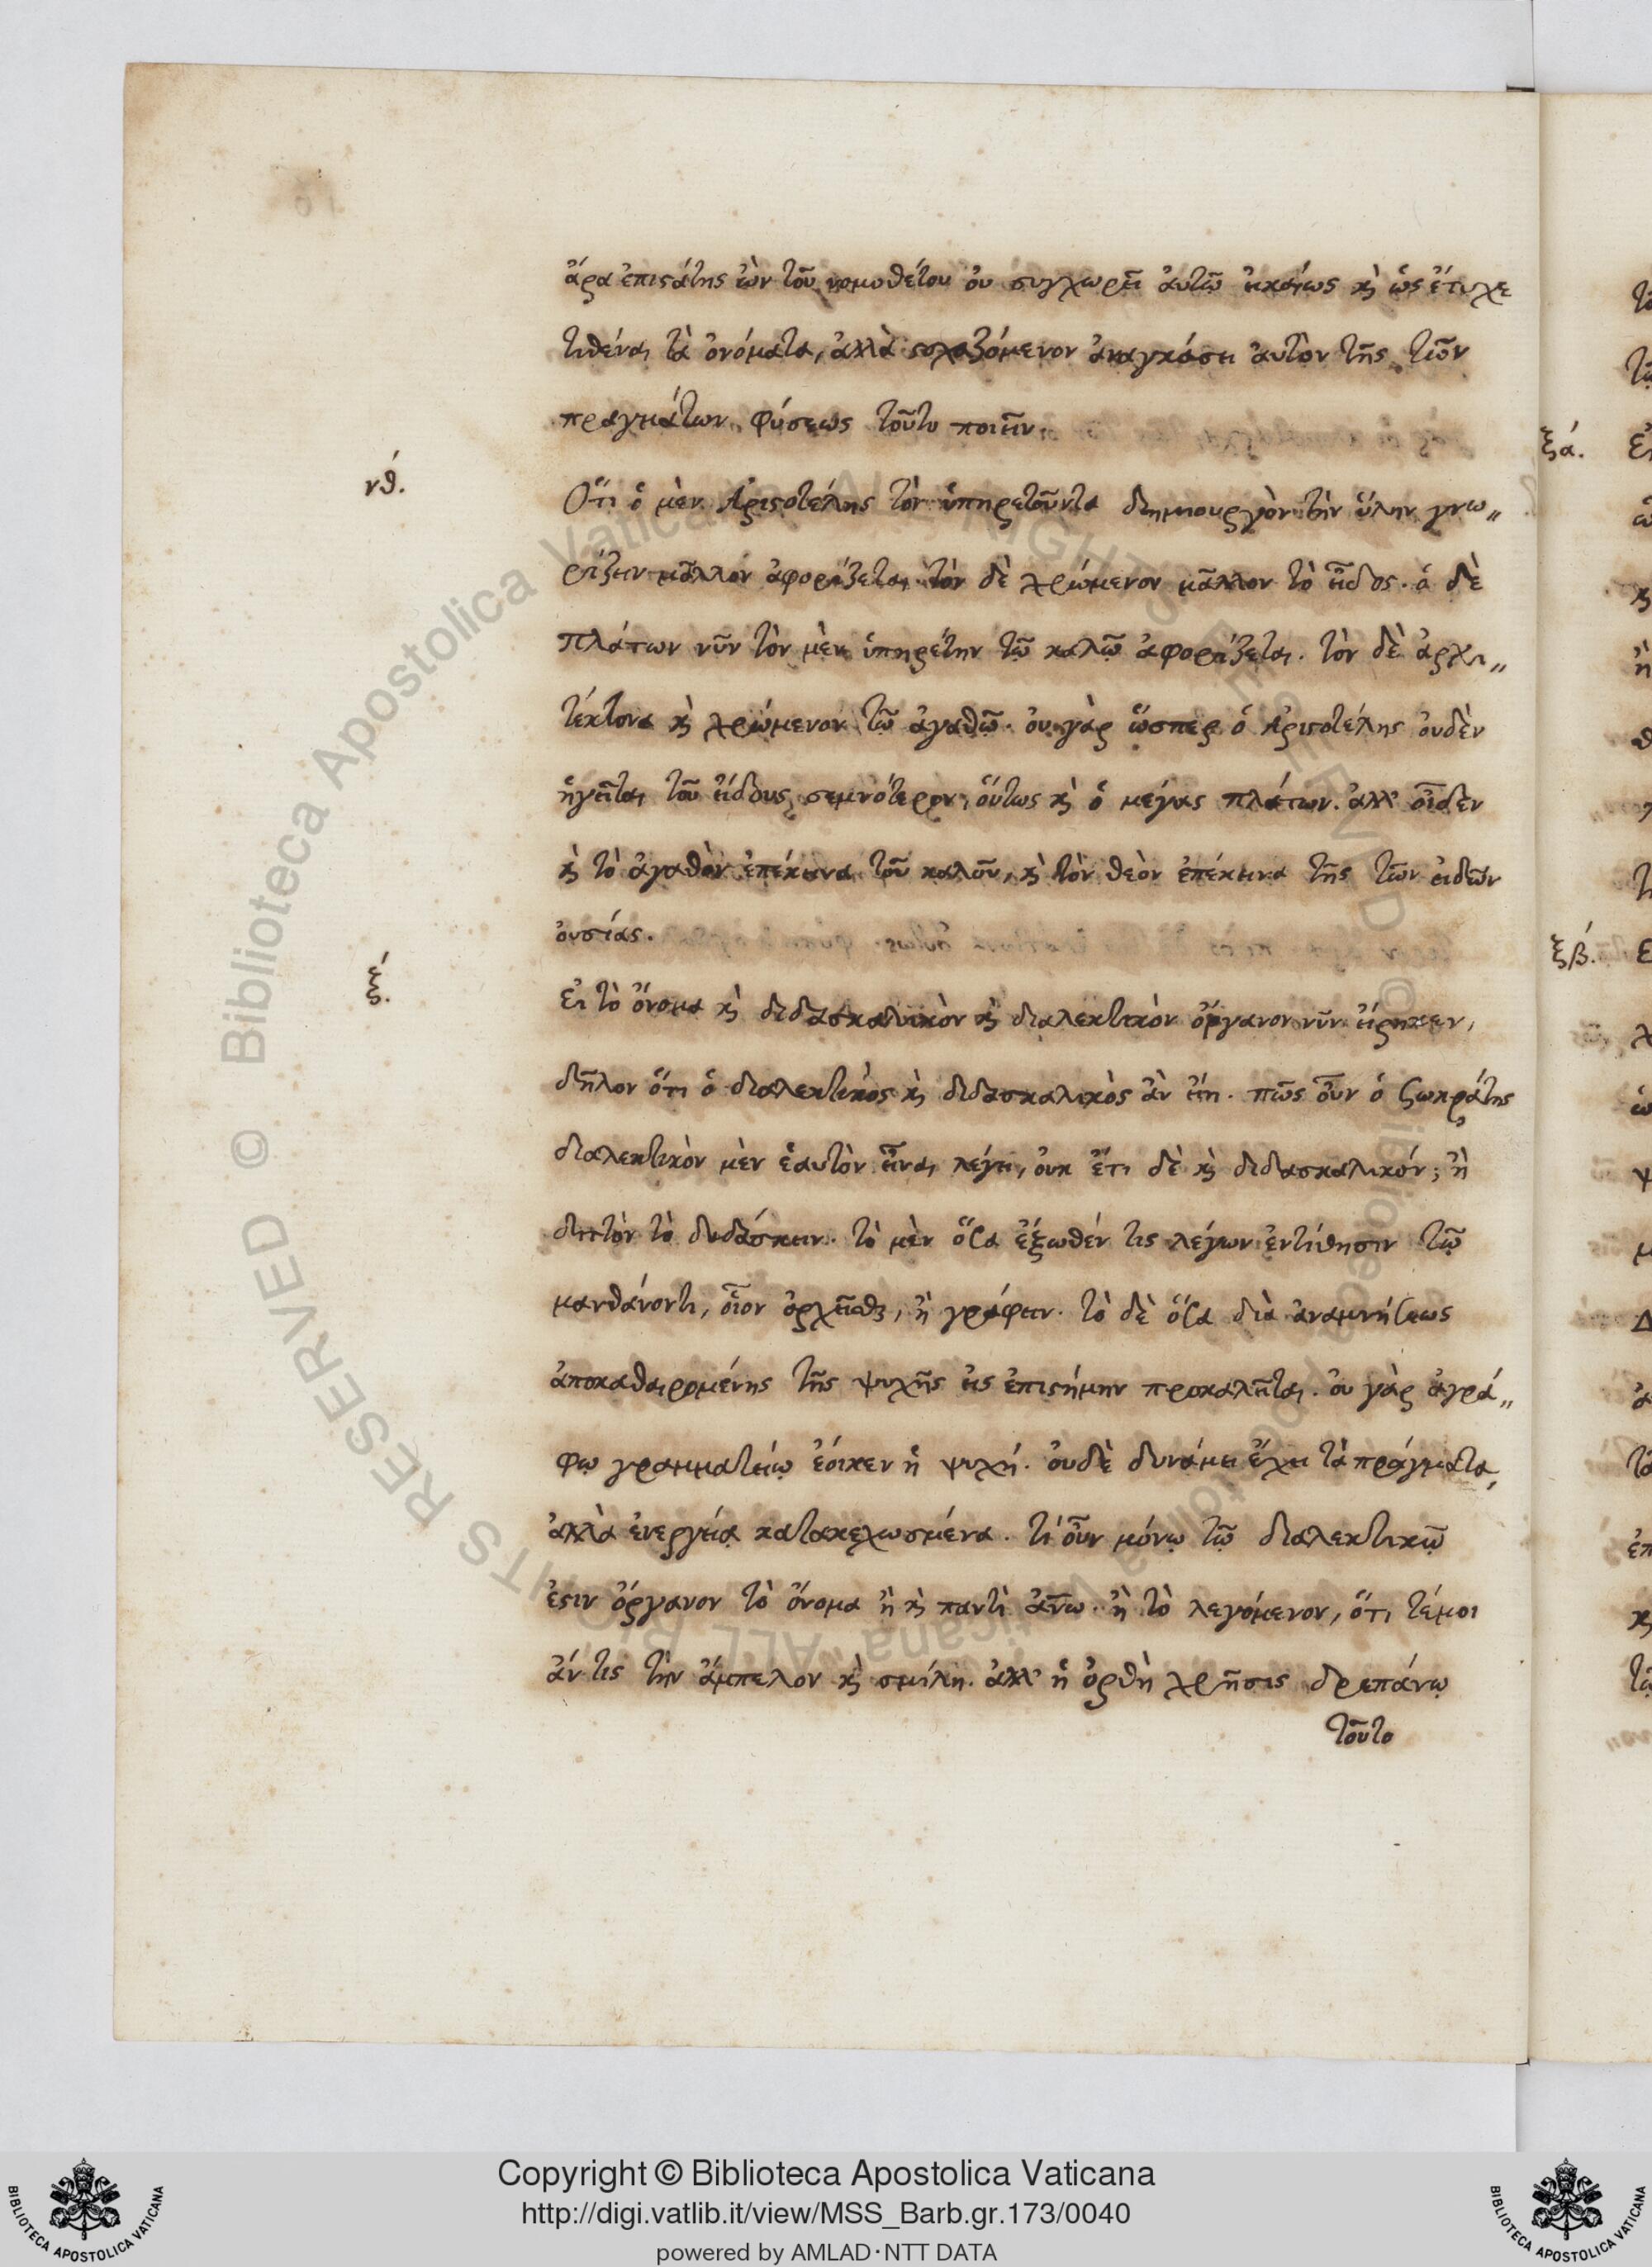 ἄρα ἐπιστάτης ὢν τοῦ νομοθέτου οὐ συγχωρεῖ αὐτῷ εἰκαίως καὶ ὡς ἔτυχε
τιθέναι τὰ ὀνόματα, ἀλλὰ στοχαζόμενον ἀναγκάσει αὐτὸν τῆς τῶν
πραγμάτων φύσεως τοῦτο ποιεῖν.
νθ́.
Ὅτι ὁ μὲν Ἀριστοτέλης τὸν ὑπηρετοῦντα δημιουργὸν τὴν ὕλην γνω〃
ρίζειν μᾶλλον ἀφορίζεται τὸν δὲ χρώμενον μᾶλλον τὸ εἶδος. ὁ δὲ
πλάτων νῦν τὸν μὲν ὑπηρέτην τῷ καλῷ ἀφορίζεται. τὸν δὲ ἀρχι〃
τέκτονα καὶ χρώμενον τῷ ἀγαθῷ. οὐ γὰρ ὥσπερ ὁ Ἀριστοτέλης οὐδὲν
ἡγεῖται τοῦ εἴδους σεμνότερον, οὕτως καὶ ὁ μέγας πλάτων. ἀλλ' οἶδεν
καὶ τὸ ἀγαθὸν ἐπέκεινα τοῦ καλοῦ, καὶ τὸν θεὸν ἐπέκεινα τῆς τῶν εἰδῶν
οὐσίας.
ξ́.
Εἰ τὸ ὄνομα καὶ διδασκαλικὸν καὶ διαλεκτικὸν ὄργανον νῦν εἴρηκεν,
δῆλον ὅτι ὁ διαλεκτικὸς καὶ διδασκαλικὸς ἂν εἴη. πῶς οὖν ὁ Σωκράτης
διαλεκτικὸν μὲν ἑαυτὸν εἶναι λέγει, οὐκ ἔτι δὲ καὶ διδασκαλικόν; ἢ
διττὸν τὸ διδάσκειν. τὸ μὲν ὅσα ἔξωθέν τις λέγων ἐντίθησιν τῷ
μανθάνοντι, οἷον ὀρχεῖσθαι, ἢ γράφειν. τὸ δὲ ὅσα διὰ ἀναμνήσεως
ἀποκαθαιρομένης τῆς ψυχῆς εἰς ἐπιστήμην προκαλεῖται. οὐ γὰρ ἀγρά〃
φῳ γραμματείῳ ἔοικεν ἡ ψυχή. οὐδὲ δυνάμει ἔχει τὰ πράγματα,
ἀλλὰ ἐνεργείᾳ κατακεχωσμένα. τί οὖν μόνῳ τῷ διαλεκτικῷ
ἐστιν ὄργανον τὸ ὄνομα ἢ καὶ παντὶ ἀνῶ. ἢ τὸ λεγόμενον, ὅτι τέμοι
ἄν τις τὴν ἄμπελον καὶ σμίλῃ. ἀλλ' ἡ ὀρθὴ χρῆσις δρεπάνῳ
τοῦτο
ξά.
ξβ́.
© Biblioteca Apostolica Vaticana ALL RIGHTS RESERVED
Copyright © Biblioteca Apostolica Vaticana
http://digi.vatlib.it/view/MSS_Barb.gr.173/0040
powered by AMLAD·NTT DATA
BIBLIOTECA APOSTOLICA VATICANA
BIBLIOTECA APOSTOLICA VATICANA